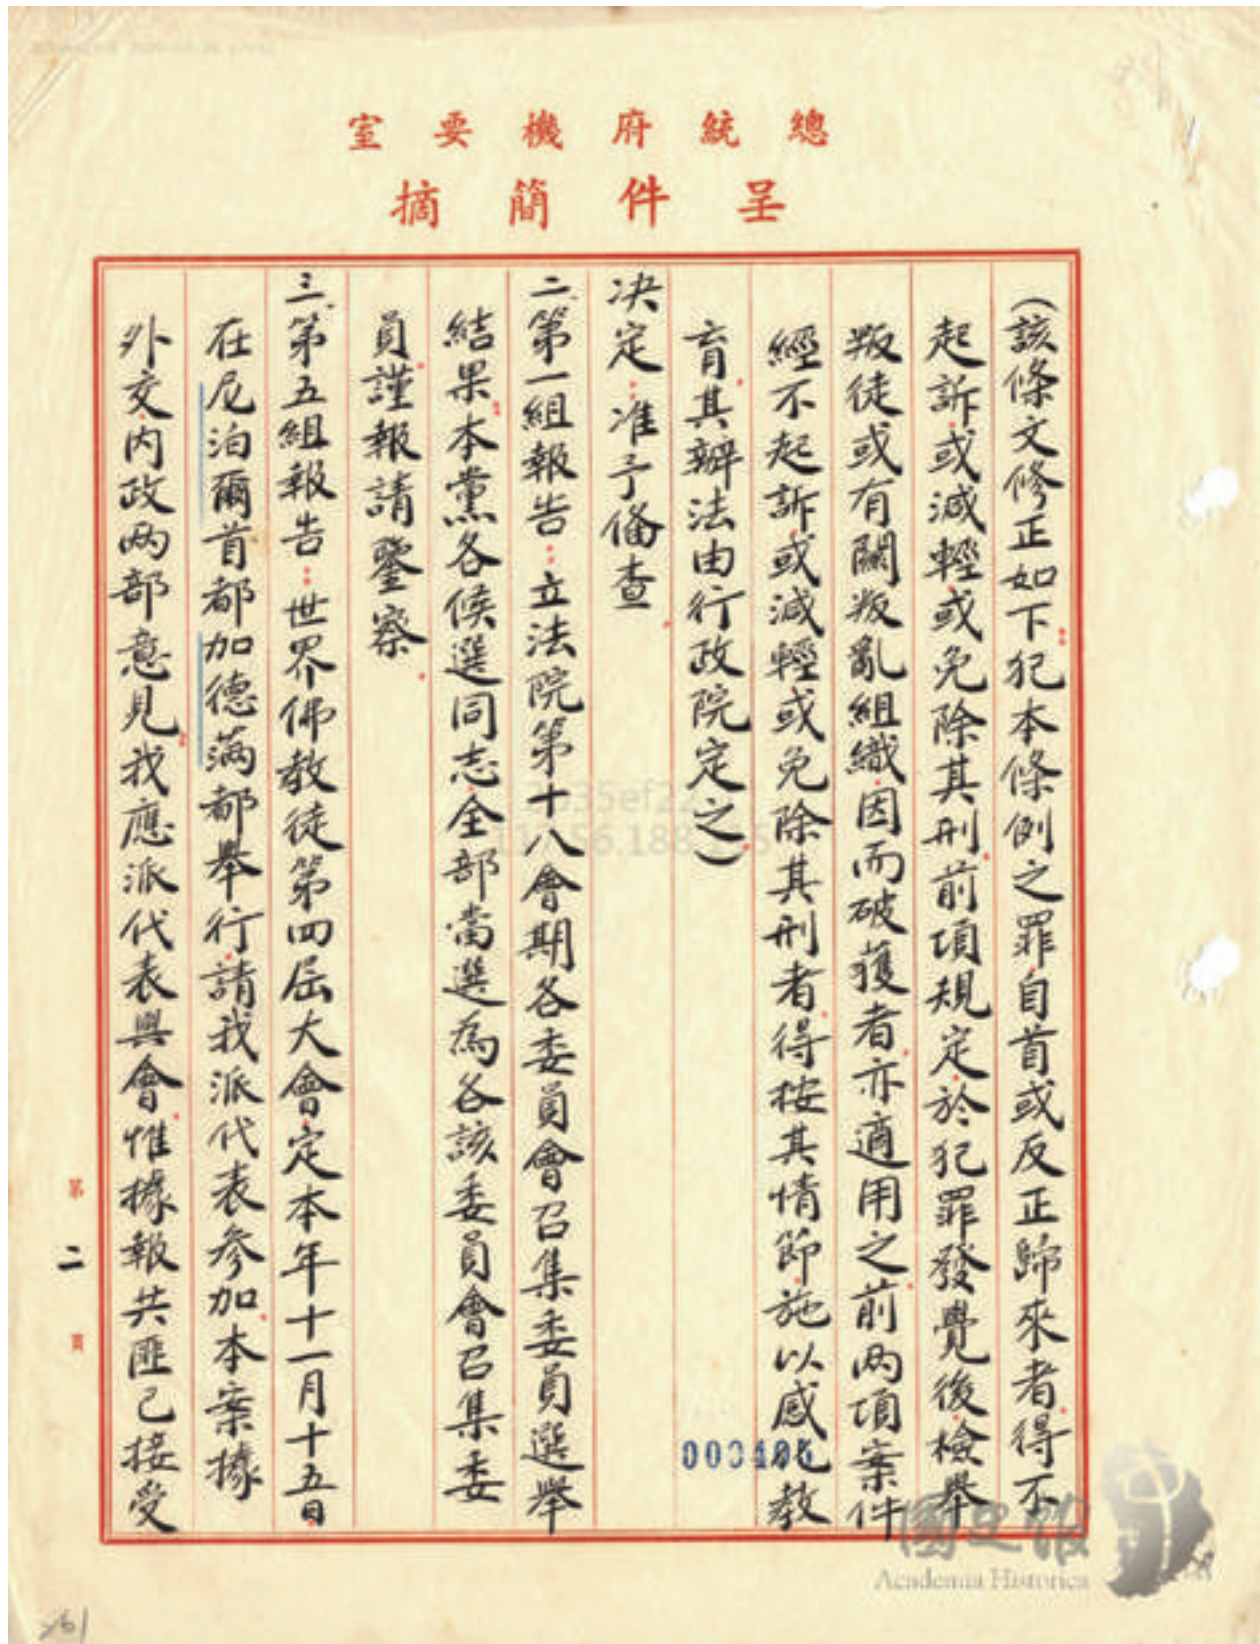 總統府機要室
呈件簡摘
(該條文修正如下：犯本條例之罪自首或反正歸來者，得不
起訴或減輕或免除其刑，前項規定於犯罪發覺後，檢舉
叛徒或有關叛亂組織，因而破獲者，亦適用之，前兩項案件
經不起訴或減輕或免除其刑者，得按其情節，施以感化教
育，其辦法由行政院定之。)
決定：准予俻查。
二、第一組報告：立法院第十八會期各委員會召集委員選舉
結果，本黨各候選同志，全部當選為各該委員會召集委
員，謹報請鑒察。
三、第五組報告：世界佛教徒第四屆大會，定本年十一月十五日，
在尼泊爾首都加德滿都舉行，請我派代表參加，本案據
外交、內政兩部意見：我應派代表與會，惟據報共匪已接受
第二頁
000405
國史館
Academia Historica